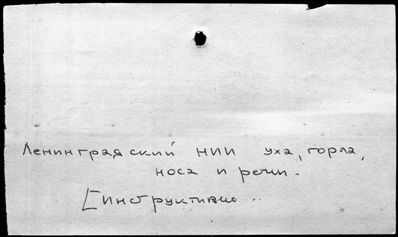 Ленинградский НИИ уха, горла,
носа и речи.
[Инструктивно ..